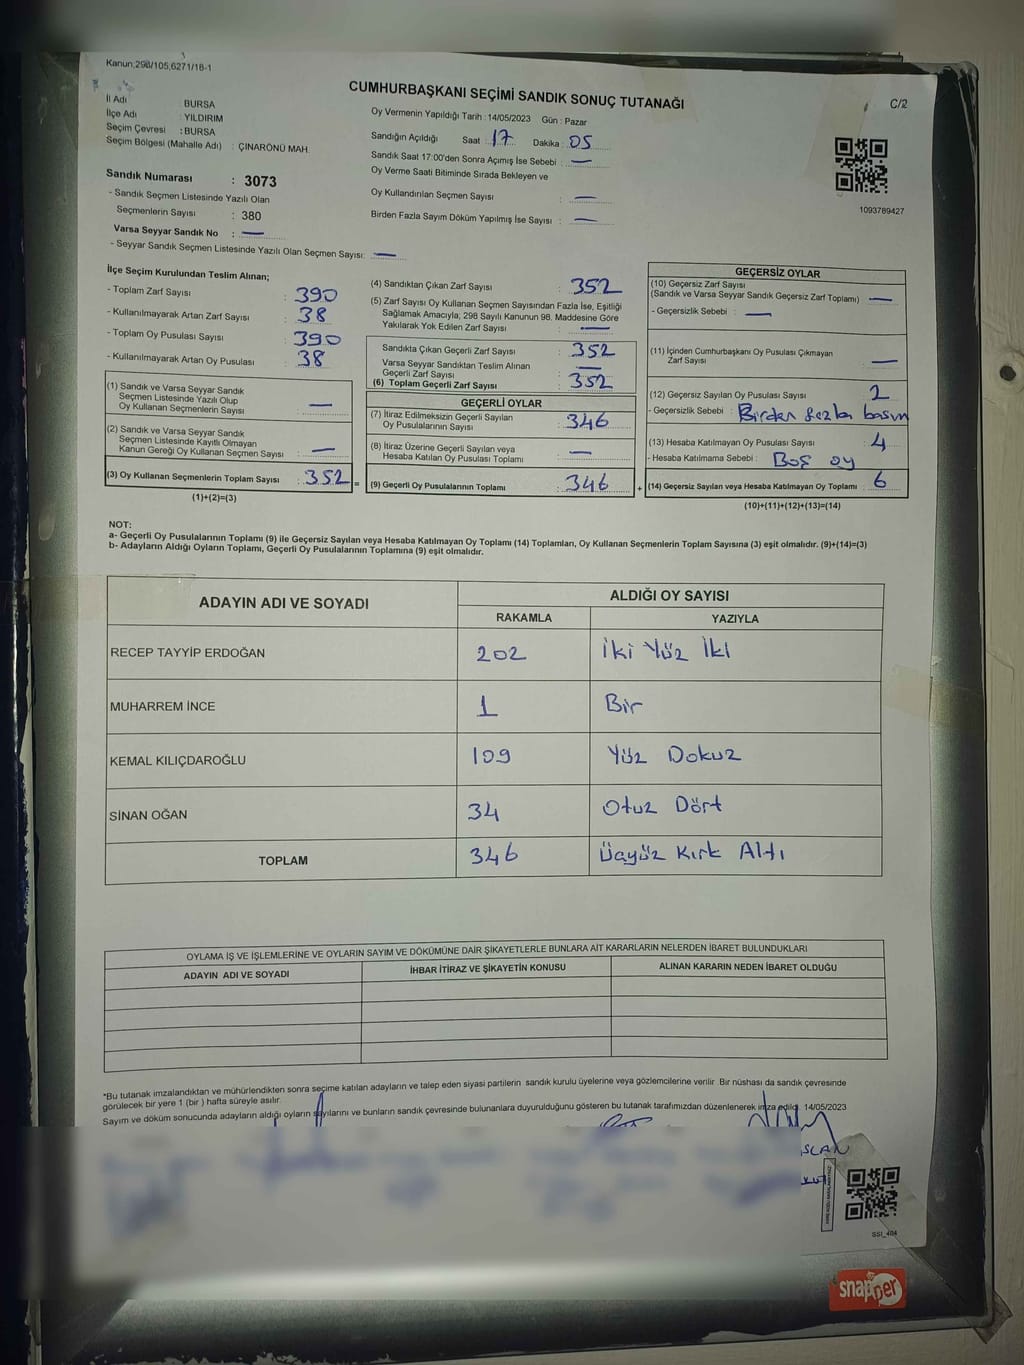 Kanun,298/105,6271/18-1
CUMHURBAŞKANI SEÇİMİ SANDIK SONUÇ TUTANAĞI
C/2
İl Adı BURSA
İlçe Adı : YILDIRIM
Seçim Çevresi : BURSA
Seçim Bölgesi (Mahalle Adı) : ÇINARÖNÜ MAH.
Sandık Numarası : 3073
- Sandık Seçmen Listesinde Yazılı Olan
Seçmenlerin Sayısı : 380
Varsa Seyyar Sandık No : —
- Seyyar Sandık Seçmen Listesinde Yazılı Olan Seçmen Sayısı: —
Oy Vermenin Yapıldığı Tarih : 14/05/2023 Gün : Pazar
Sandığın Açıldığı Saat : 17 Dakika : 05
Sandık Saat 17:00'den Sonra Açımış İse Sebebi : —
Oy Verme Saati Bitiminde Sırada Bekleyen ve
Oy Kullandırılan Seçmen Sayısı : —
Birden Fazla Sayım Döküm Yapılmış İse Sayısı : —
1093789427
İlçe Seçim Kurulundan Teslim Alınan;
- Toplam Zarf Sayısı : 390
- Kullanılmayarak Artan Zarf Sayısı : 38
- Toplam Oy Pusulası Sayısı : 390
- Kullanılmayarak Artan Oy Pusulası : 38
(1) Sandık ve Varsa Seyyar Sandık
Seçmen Listesinde Yazılı Olup
Oy Kullanan Seçmenlerin Sayısı : —
(2) Sandık ve Varsa Seyyar Sandık
Seçmen Listesinde Kayıtlı Olmayan
Kanun Gereği Oy Kullanan Seçmen Sayısı : —
(3) Oy Kullanan Seçmenlerin Toplam Sayısı : 352 =
(1)+(2)=(3)
(4) Sandıktan Çıkan Zarf Sayısı : 352
(5) Zarf Sayısı Oy Kullanan Seçmen Sayısından Fazla İse, Eşitliği
Sağlamak Amacıyla, 298 Sayılı Kanunun 98. Maddesine Göre
Yakılarak Yok Edilen Zarf Sayısı : —
Sandıkta Çıkan Geçerli Zarf Sayısı : 352
Varsa Seyyar Sandıktan Teslim Alınan
Geçerli Zarf Sayısı : —
(6) Toplam Geçerli Zarf Sayısı : 352
GEÇERLİ OYLAR
(7) İtiraz Edilmeksizin Geçerli Sayılan
Oy Pusulalarının Sayısı : 346
(8) İtiraz Üzerine Geçerli Sayılan veya
Hesaba Katılan Oy Pusulası Toplamı : —
(9) Geçerli Oy Pusulalarının Toplamı : 346 +
GEÇERSİZ OYLAR
(10) Geçersiz Zarf Sayısı
(Sandık ve Varsa Seyyar Sandık Geçersiz Zarf Toplamı) : —
- Geçersizlik Sebebi : —
(11) İçinden Cumhurbaşkanı Oy Pusulası Çıkmayan
Zarf Sayısı : —
(12) Geçersiz Sayılan Oy Pusulası Sayısı : 2
- Geçersizlik Sebebi : Birden fazla basım
(13) Hesaba Katılmayan Oy Pusulası Sayısı : 4
- Hesaba Katılmama Sebebi : Boş oy
(14) Geçersiz Sayılan veya Hesaba Katılmayan Oy Toplamı : 6
(10)+(11)+(12)+(13)=(14)
NOT:
a- Geçerli Oy Pusulalarının Toplamı (9) ile Geçersiz Sayılan veya Hesaba Katılmayan Oy Toplamı (14) Toplamları, Oy Kullanan Seçmenlerin Toplam Sayısına (3) eşit olmalıdır. (9)+(14)=(3)
b- Adayların Aldığı Oyların Toplamı, Geçerli Oy Pusulalarının Toplamına (9) eşit olmalıdır.
ADAYIN ADI VE SOYADI ALDIĞI OY SAYISI
RAKAMLA YAZIYLA
RECEP TAYYİP ERDOĞAN 202 İki Yüz İki
MUHARREM İNCE 1 Bir
KEMAL KILIÇDAROĞLU 109 Yüz Dokuz
SİNAN OĞAN 34 Otuz Dört
TOPLAM 346 Üçyüz Kırk Altı
OYLAMA İŞ VE İŞLEMLERİNE VE OYLARIN SAYIM VE DÖKÜMÜNE DAİR ŞİKAYETLERLE BUNLARA AİT KARARLARIN NELERDEN İBARET BULUNDUKLARI
ADAYIN ADI VE SOYADI İHBAR İTİRAZ VE ŞİKAYETİN KONUSU ALINAN KARARIN NEDEN İBARET OLDUĞU
*Bu tutanak imzalandıktan ve mühürlendikten sonra seçime katılan adayların ve talep eden siyasi partilerin sandık kurulu üyelerine veya gözlemcilerine verilir. Bir nüshası da sandık çevresinde
görülecek bir yere 1 (bir ) hafta süreyle asılır.
Sayım ve döküm sonucunda adayların aldığı oyların sayılarını ve bunların sandık çevresinde bulunanlara duyurulduğunu gösteren bu tutanak tarafımızdan düzenlenerek imza edildi. 14/05/2023
SLAN
SSI_404
snapper